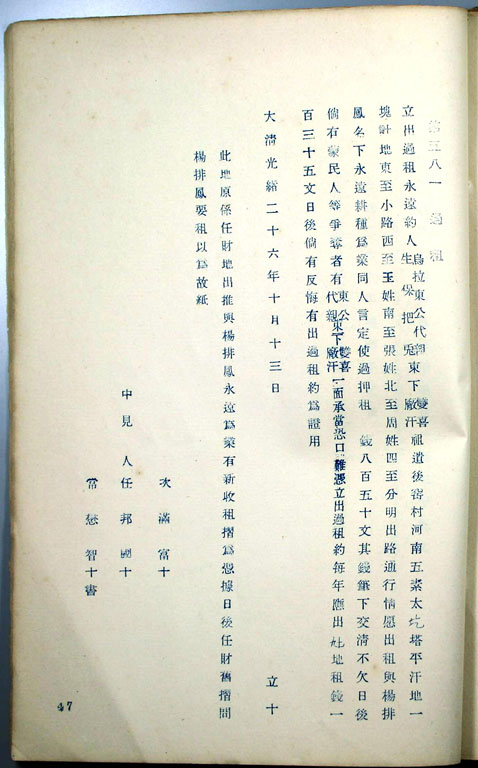 五八一 過租
立出過租永遠約人烏拉東公代親東下雙喜廠汗生保把兎祖遺後窑村河南五素太圪塔平汗地一
塊計地東至小路西至王姓南至張姓北至周姓四至分明出路通行情愿出租與楊排
鳳名下永遠耕種爲業同人言定使過押租 錢八百五十文其錢筆下交清不欠日後
倘有蒙民人等爭奪者有東公代親東下雙喜廠汗一面承當恐口難憑立出過租約每年應出地租錢一
百三十五文日後倘有反悔有出過租約爲證用
大清光緒二十六年十月十三日 立十
此地原係任財地出推與楊排鳳永遠爲業有新收租摺爲憑據日後任財舊摺問
楊排鳳要租以爲故紙
滿富十
中見人任邦國十
常懋智十書
47